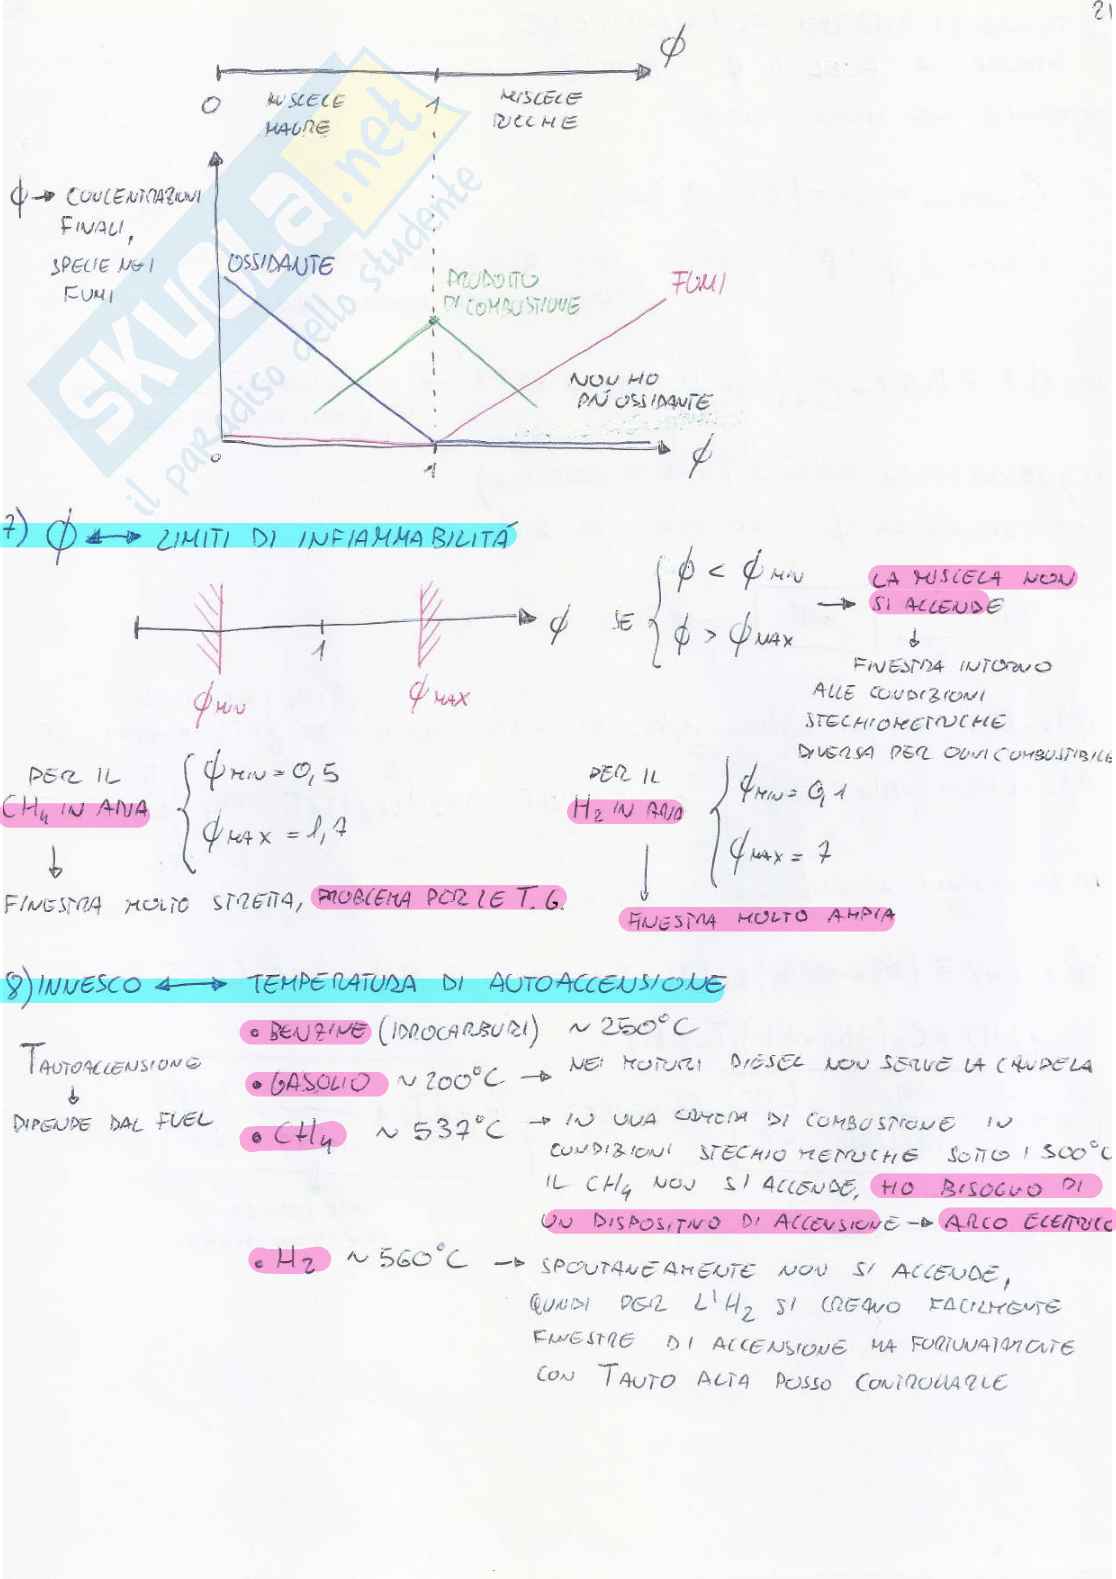 21
ϕ
0
MISCELE
MAGRE
1
MISCELE
RICCHE
ϕ → CONCENTRAZIONI
FINALI,
SPECIE NEI
FUMI
OSSIDANTE
PRODOTTO
DI COMBUSTIONE
FUMI
NON HO
PIÚ OSSIDANTE
0
1
ϕ
SKUOLA.net
il paradiso dello studente
7) ϕ ↔ LIMITI DI INFIAMMABILITÁ
1
ϕ
ϕ MIN
ϕ MAX
SE
ϕ < ϕ MIN
ϕ > ϕ MAX
→ LA MISCELA NON
SI ACCENDE
↓
FINESTRA INTORNO
ALLE CONDIZIONI
STECHIOMETRICHE
DIVERSA PER OGNI COMBUSTIBILE
PER IL
CH4 IN ARIA
ϕ MIN = 0,5
ϕ MAX = 1,7
↓
FINESTRA MOLTO STRETTA, PROBLEMA PER LE T.G.
PER IL
H2 IN ARIA
ϕ MIN = 0,1
ϕ MAX = 7
↓
FINESTRA MOLTO AMPIA
8) INNESCO ↔ TEMPERATURA DI AUTOACCENSIONE
TAUTOACCENSIONE
↓
DIPENDE DAL FUEL
• BENZINE (IDROCARBURI) ~ 250°C
• GASOLIO ~ 200°C → NEI MOTORI DIESEL NON SERVE LA CANDELA
• CH4 ~ 537°C → IN UNA CAMERA DI COMBUSTIONE IN
CONDIZIONI STECHIOMETRICHE SOTTO I 500°C
IL CH4 NON SI ACCENDE, HO BISOGNO DI
UN DISPOSITIVO DI ACCENSIONE → ARCO ELETTRICO
• H2 ~ 560°C → SPONTANEAMENTE NON SI ACCENDE,
QUINDI PER L'H2 SI CREANO FACILMENTE
FINESTRE DI ACCENSIONE MA FORTUNATAMENTE
CON TAUTO ALTA POSSO CONTROLLARLE